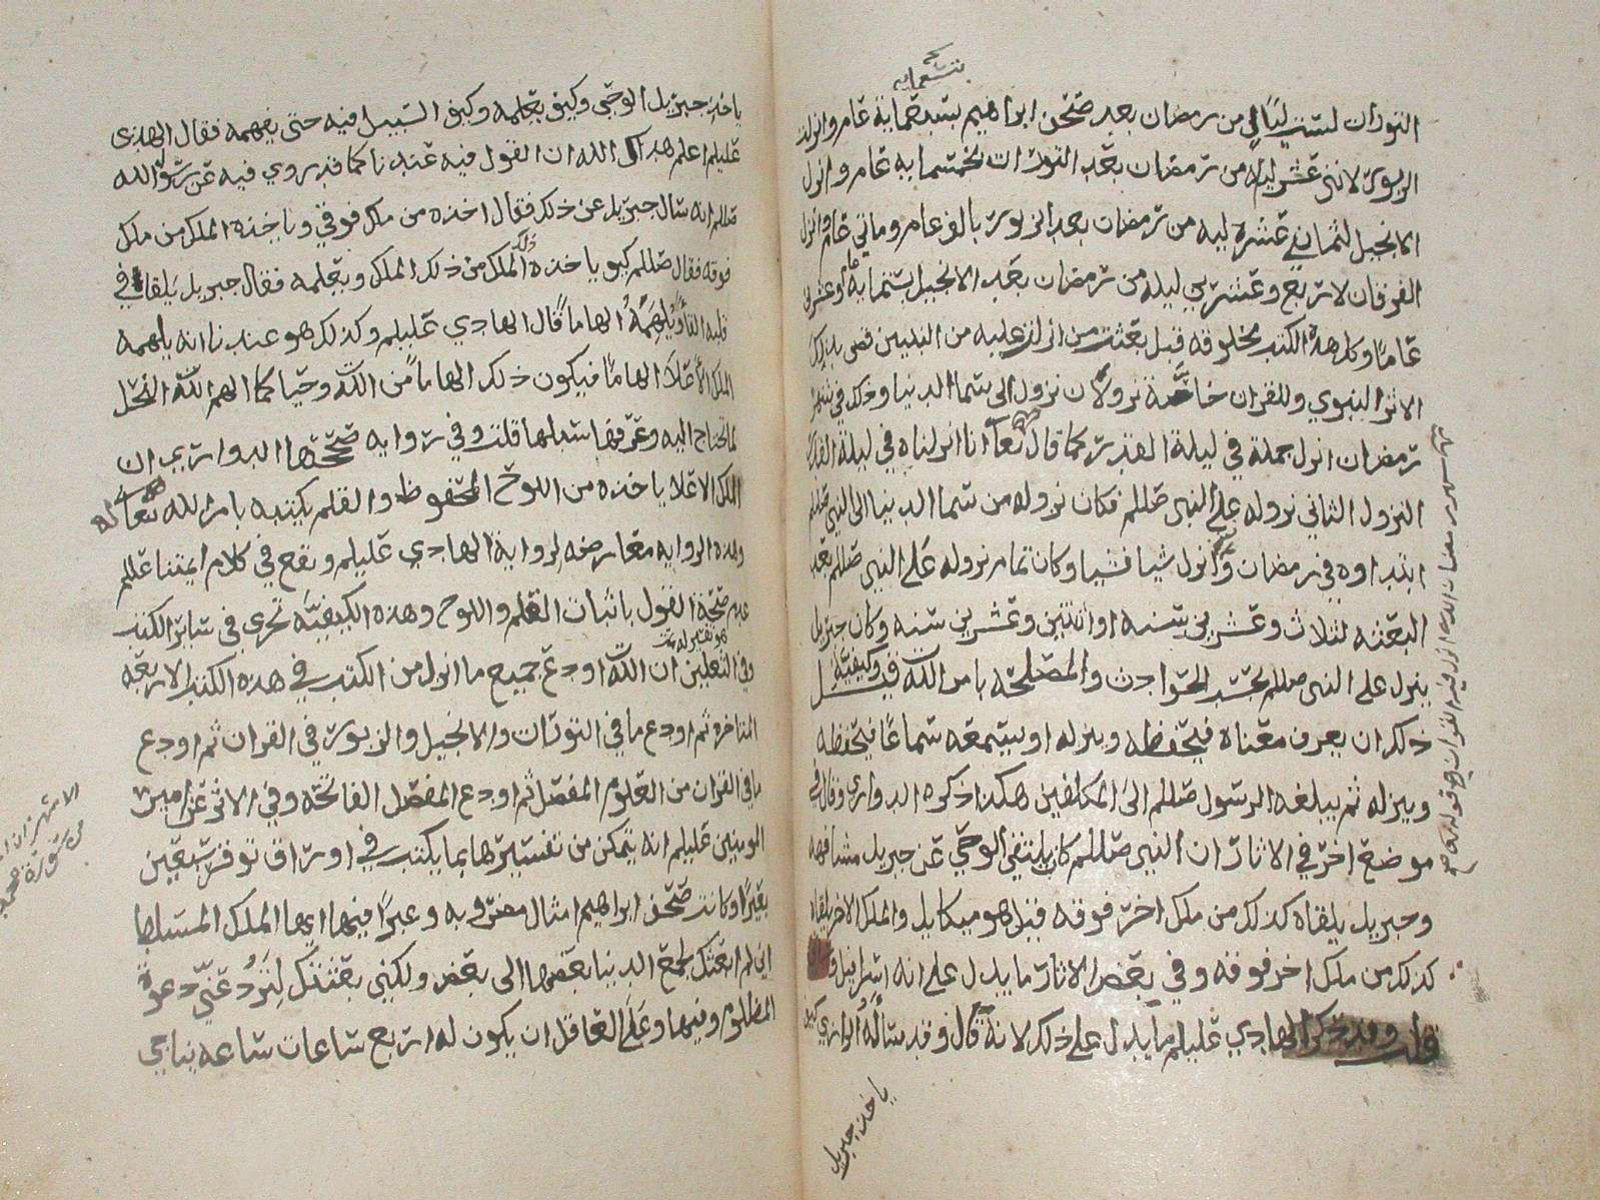 بتسعمايه
التوراة لست ليال من رمضان بعد صحف ابراهيم بسبعماية عام وانزل
الزبور لاثنى عشر ليلة من رمضان بعد التورات بخمسمايه عام وانزل
الانجيل لثماني عشره ليله من رمضان بعد الزبور بالف عام وماتي عام وانزل
الفرقان لاربع وعشرين ليله من رمضان بعد الانجيل بستمايه عام وعشرين
عامًا وكل هذه الكتب مخلوقه قبل بعثت من انزلت عليه من النبيين قضى بذلك
الاثر النبوي وللقران خاصة نزولان نزول الى سما الدنيا وذلك في شهر
رمضان انزل جملة في ليلة القدر كما قال تعالى انا انزلناه في ليلة القدر
النزول الثاني نزوله على النبي صللم فكان نزوله من سما الدنيا الى النبي صللم
ابتداوه في رمضان وانزل شيا فشيا وكان تمام نزوله على النبي صللم بعد
البعثه لثلاث وعشرين سنه او اثنتين وعشرين سنه وكان جبريل
ينزل على النبي صللم بحسب الحوادث والمصلحه بامر الله وكيفية
ذلك ان يعرف معناه فيحفظه وينزله او يسمعه سماعًا فيحفظه
وينزله ثم يبلغه الرسول صللم الى المكلفين هكذا ذكره الدواري وقال في
موضع اخر في الاثار ان النبي صللم كان يلتقي الوحي عن جبريل مشافهه
وجبريل يلقاه كذلك من ملك اخر فوقه قيل هو ميكايل والملك الاخر يلقاه
كذلك من ملك اخر فوقه وفي بعض الاثار ما يدل على انه اسرافيل
قلت وقد ذكر الهادي عليلم ما يدل على ذلك لانه قال وقد سأله الرازي كيف
ياخذ جبريل
شهر رمضان الذي انزل فيه القران
ياخذ جبريل الوحي وكيف يعلمه وكيف السبيل فيه حتى يفهمه فقال الهادي
عليلم اعلم هداك الله ان القول فيه عندنا كما قد روي فيه عن رسول الله
صللم انه سال جبريل عن ذلك فقال اخذه من ملك فوقي وياخذه الملك من ملك
فوقه فقال صللم كيف ياخذه ذلك الملك من ذلك الملك ويعلمه فقال جبريل يلقا في
قلبه القأ ويُلهمهُ الهامًا قال الهادي عليلم وكذلك هو عندنا انه يلهمه
الملك الأعلا الهامًا فيكون ذلك الهامًا من الله وحيا كما الهم الله النحل
لما تحتاج اليه وعرفها سبلها قلت وفي روايه صححها الدواري ان
الملك الاعلا ياخذه من اللوح المحفوظ والقلم يكتبه بامر الله تعالى له
وهذه الروايه معارضه لرواية الهادي عليلم ويقع في كلام ايمتنا عللم
عدم صحة القول باثبات القلم واللوح وهذه الكيفيّه تجرى في ساير الكتب
وفي الثعلبي ان الله اودع جميع ما انزل من الكتب في هذه الكتب الاربعه
المتاخره ثم اودع ما في التورات والانجيل والزبور في القران ثم اودع
ما في القران من العلوم المفصل ثم اودع المفصل الفاتحه وفي الاثر عن امير
المومنين عليلم انه يتمكن من تفسيرها بما يكتب في اوراق توقر سبعين
بعيرًا وكانت صحف ابراهيم امثال معتبر به وعبرًا فيها ايها الملك المسلط
اني لم ابعثك لجمع الدنيا بعضها الى بعض ولكني بعثتك لترد عني دعوة
المظلوم وفيها وعلى العاقل ان يكون له اربع ساعات ساعه يناجي